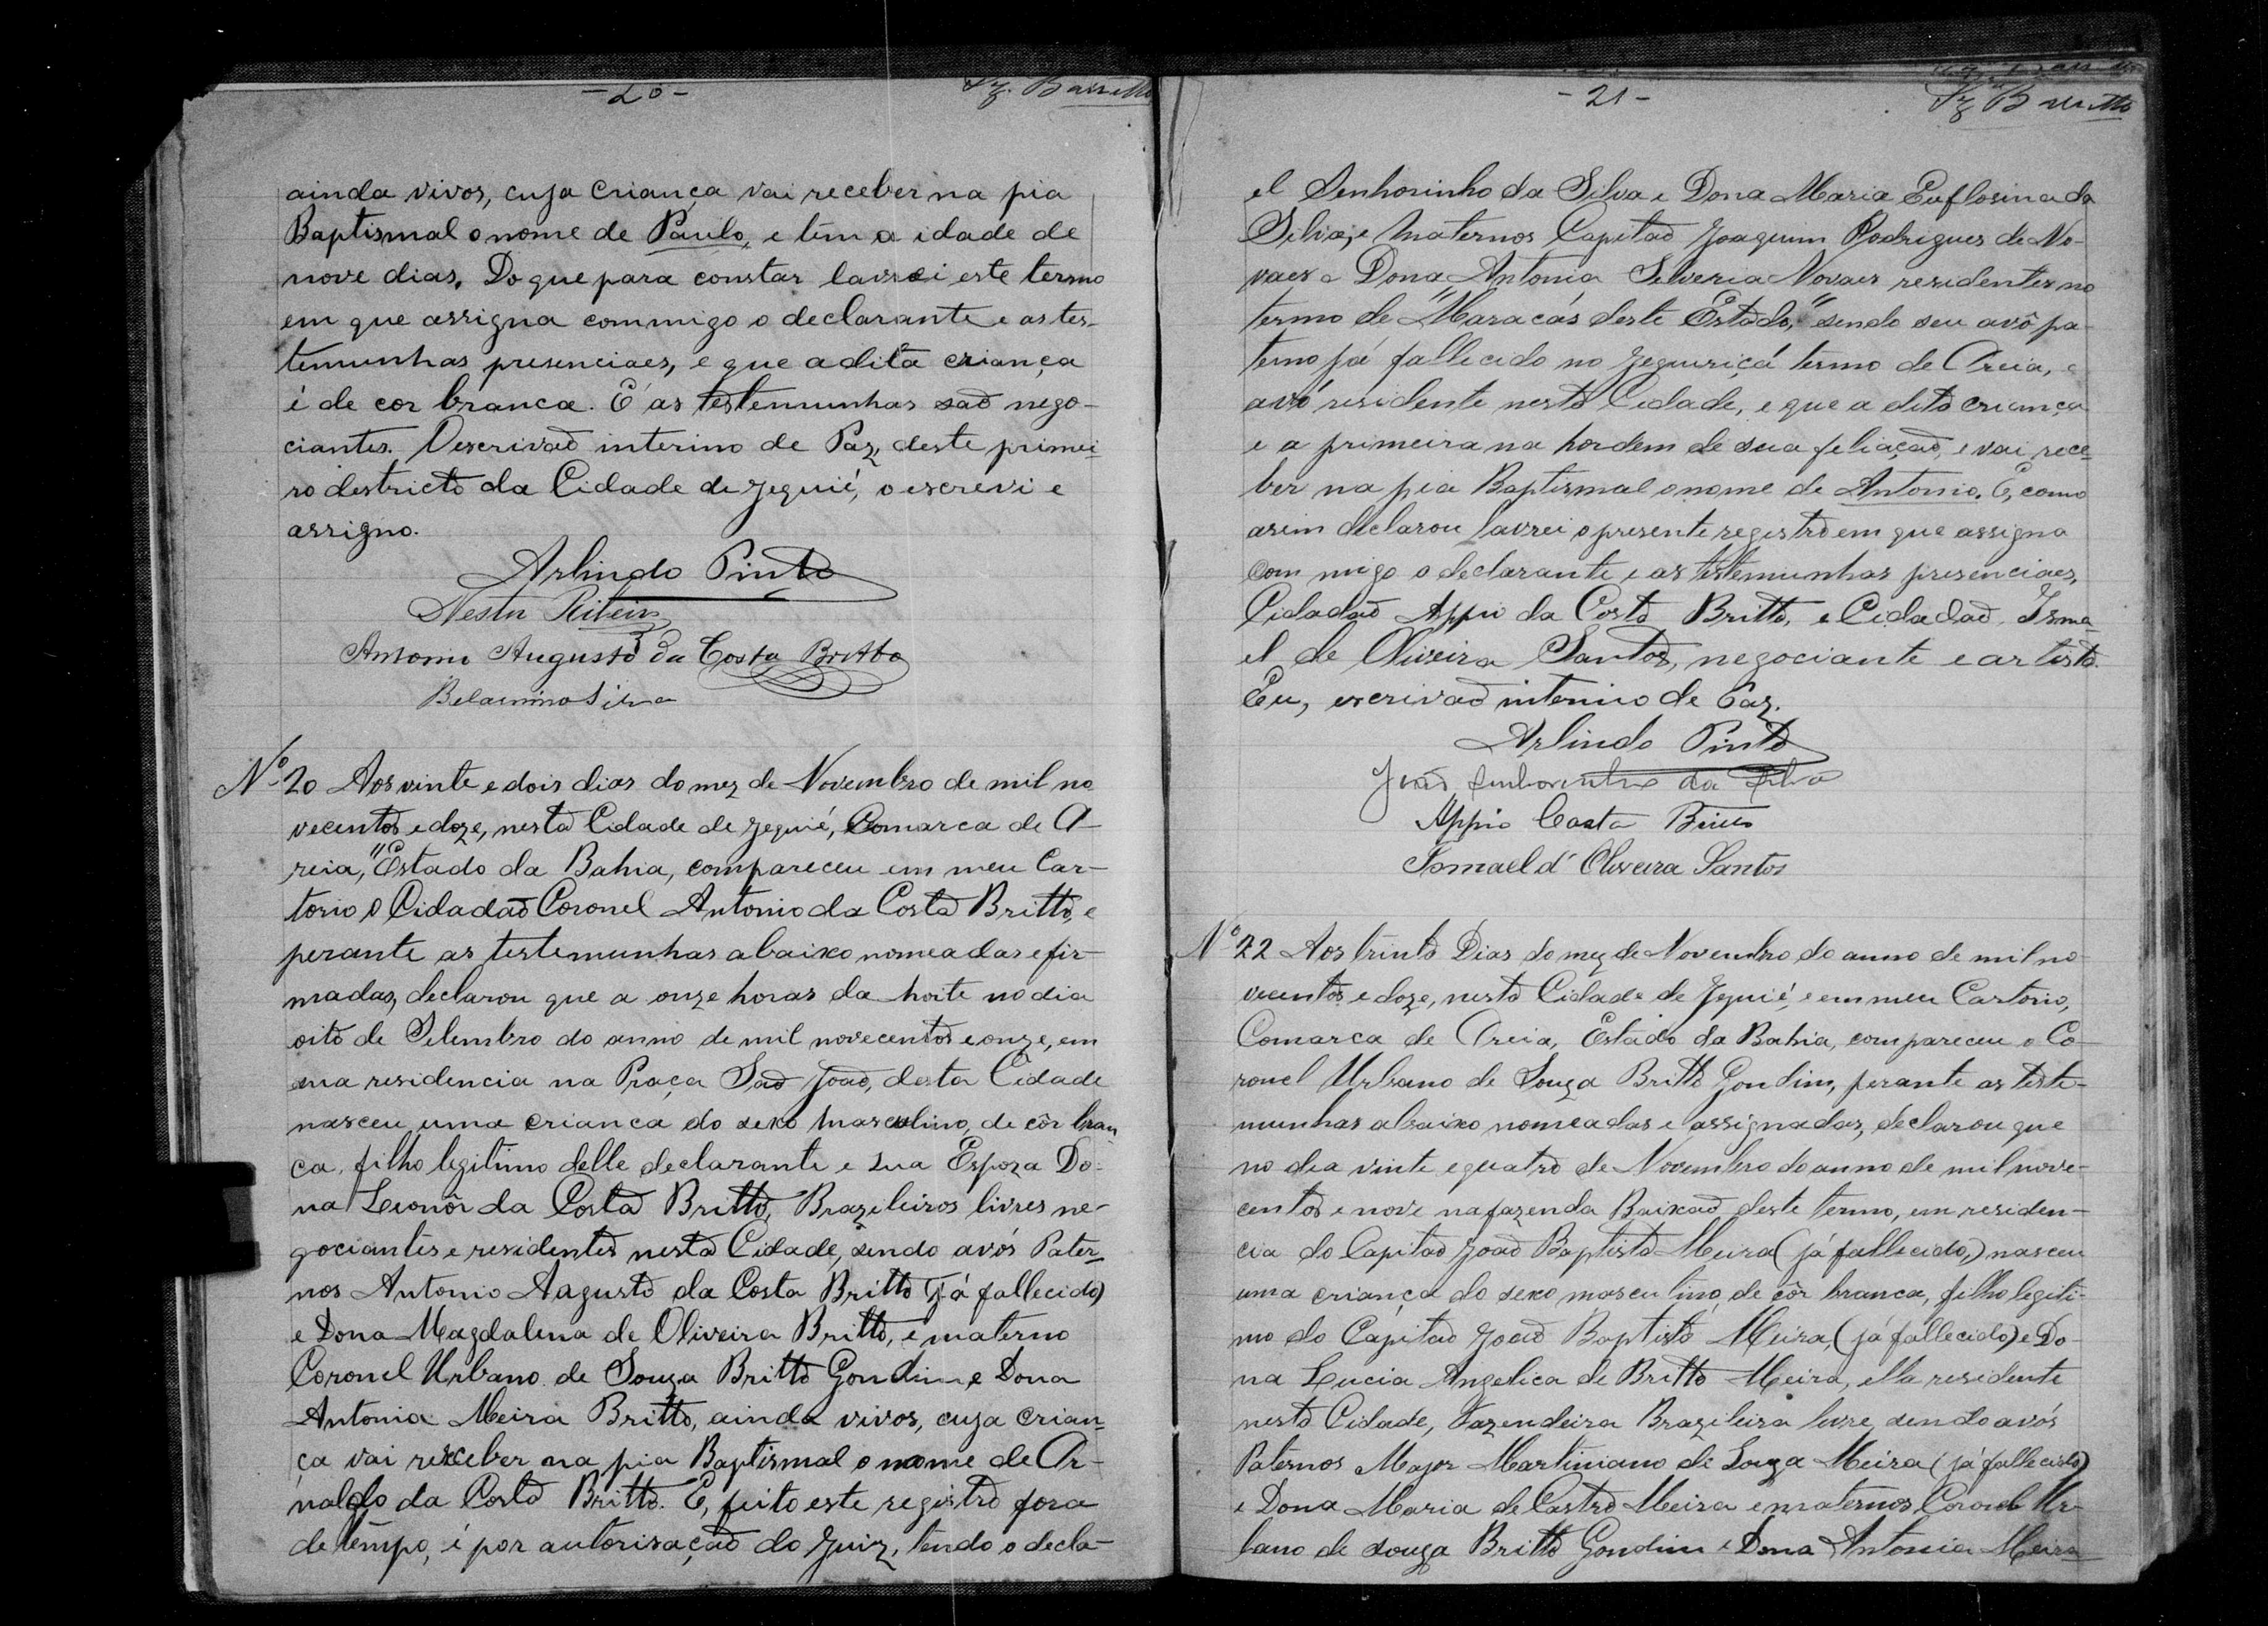 - 20 -
ainda vivos, cuja criança vai receber na pia
Baptismal o nome de Paulo, e tem a idade de
nove dias. Do que para constar lavrei este termo
em que assigna commigo o declarante e as tes-
temunhas presenciaes, e que a dita criança
é de cor branca. E as testemunhas saõ nego-
ciantes. O escrivaõ interino de Paz, deste primei-
ro destricto da Cidade de Jequié, o escrevi e
assigno.
Arlindo Pinto
Nestor Ribeiro
Antonio Augusto da Costa Britto
Belarmino Silva
Nº 20 Aos vinte e dois dias do mez de Novembro de mil no
vecentos e doze, nesta Cidade de Jequié, Comarca de A-
reia, Estado da Bahia, compareceu em meu Car-
torio o Cidadaõ Coronel Antonio da Costa Britto, e
perante as testemunhas abaixo nomeadas e fir-
madas, declarou que a onze horas da noite no dia
oito de Setembro do anno de mil novecentos e onze, em
sua residencia na Praça Saõ Joaõ, desta Cidade
nasceu uma crianca do sexo masculino, de côr bran
ca, filho legitimo delle declarante e sua Espoza Do-
na Leonôr da Costa Britto, Brazileiros livres ne-
gociantes e residentes nesta Cidade, sendo avós Pater-
nos Antonio Augusto da Costa Britto (já fallecido)
e Dona Magdalena de Oliveira Britto, e materno
Coronel Urbano de Souza Britto Gondim e Dona
Antonia Meira Britto, ainda vivos, cuja crian-
ça vai receber na pia Baptismal o nome de Ar-
naldo da Costa Britto. E, feito este registro fora
de tempo, é por autorisaçaõ do Juiz, tendo o decla-
- 21 -
el Senhorinho da Silva e Dona Maria Euflosina da
Silva, e maternos Capitaõ Joaquim Rodrigues de No-
vaes e Dona Antonia Silveria Novaes residentes no
termo de "Maracás deste Estado," sendo seu avô pa-
terno já fallecido no Jequiriçá termo de Areia, e
avó residente nesta Cidade, e que a dita criança
e a primeira na hordem de sua feliaçaõ, e vai rece-
ber na pia Baptismal o nome de Antonio. E, como
asim declarou lavrei o presente registro em que assigna
com migo o declarante e as testemunhas presenciaes,
Cidadaõ Appio da Costa Britto, e Cidadaõ Isma-
el de Oliveira Santos, negociante e artista.
Eu, escrivaõ interino de Paz.
Arlindo Pinto
Joaõ Senhorinho da Silva
Appio Costa Britto
Ismael d'Oliveira Santos
Nº 22 Aos trinta Dias do mez de Novembro do anno de mil no-
vecentos e doze, nesta Cidade de Jequié, e em meu Cartorio,
Comarca de Areia, Estado da Bahia, compareceu o Co-
ronel Urbano de Souza Britto Gondim, perante as teste-
munhas abaixo nomeadas e assignadas, declarou que
no dia vinte e quatro de Novembro do anno de mil nove-
centos e nove na fazenda Baixaõ deste termo, em residen-
cia do Capitaõ Joaõ Baptista Meira (já fallecido,) nasceu
uma criança do sexo masculino, de côr branca, filho legiti-
mo do Capitaõ Joaõ Baptista Meira, (já fallecido) e Do-
na Lucia Angelica de Britto Meira, ella residente
nesta Cidade, Fazendeira Brazileira livre, sendo avós
Paternos Major Martiniano de Souza Meira (já fallecido)
e Dona Maria de Castro Meira e maternos Coronel Ur-
bano de souza Britto Gondim e Dona Antonia Meira